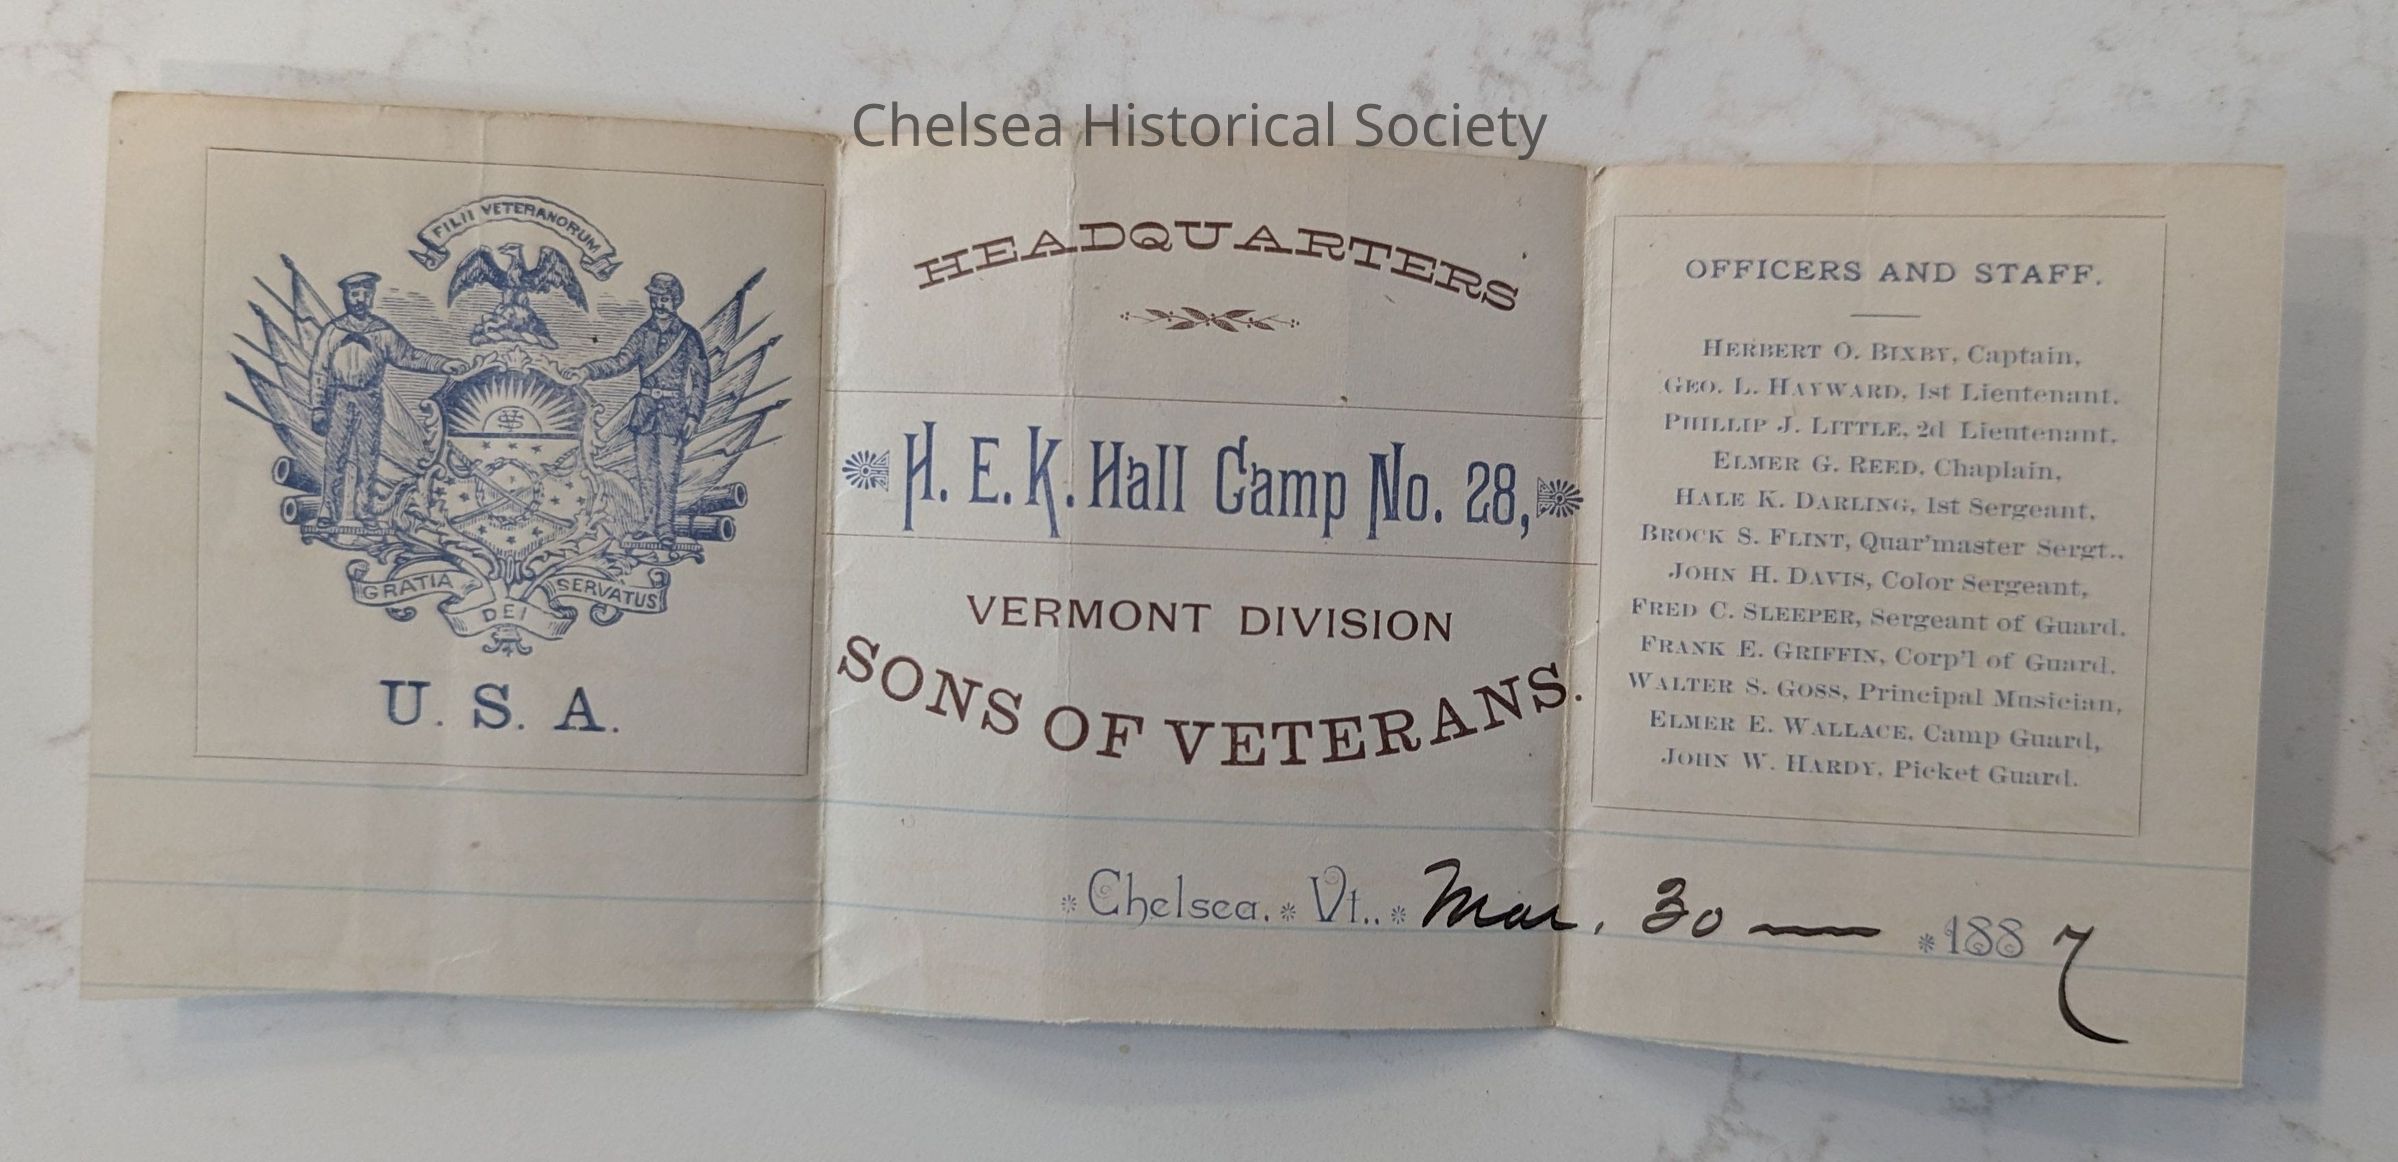 Chelsea Historical Society
FILII VETERANORUM
SV
GRATIA DEI SERVATUS
U. S. A.
HEADQUARTERS
H. E. K. Hall Camp No. 28,
VERMONT DIVISION
SONS OF VETERANS.
OFFICERS AND STAFF.
HERBERT O. BIXBY, Captain,
GEO. L. HAYWARD, 1st Lieutenant.
PHILLIP J. LITTLE, 2d Lieutenant.
ELMER G. REED, Chaplain,
HALE K. DARLING, 1st Sergeant,
BROCK S. FLINT, Quar'master Sergt.,
JOHN H. DAVIS, Color Sergeant,
FRED C. SLEEPER, Sergeant of Guard.
FRANK E. GRIFFIN, Corp'l of Guard.
WALTER S. GOSS, Principal Musician,
ELMER E. WALLACE, Camp Guard,
JOHN W. HARDY, Picket Guard.
Chelsea, Vt., Mar. 30 — 1887